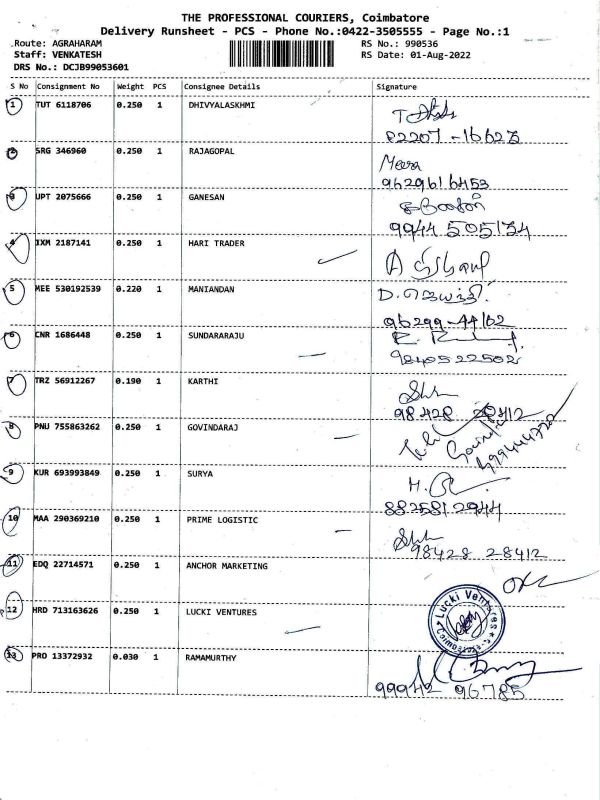 THE PROFESSIONAL COURIERS, Coimbatore
Delivery Runsheet - PCS - Phone No.:0422-3505555 - Page No.:1
Route: AGRAHARAM
RS No.: 990536
Staff: VENKATESH
RS Date: 01-Aug-2022
DRS No.: DCJB99053601
S No Consignment No Weight PCS Consignee Details Signature
1 TUT 6118706 0.250 1 DHIVYALASKHMI
82207-16623
2 SRG 346960 0.250 1 RAJAGOPAL Meera
9629616453
3 UPT 2075666 0.250 1 GANESAN
9944505134
4 IXM 2187141 0.250 1 HARI TRADER
5 MEE 530192539 0.220 1 MANIANDAN D. ஜெயந்தி
96299-44162
6 CNR 1686448 0.250 1 SUNDARARAJU
9840522502
7 TRZ 56912267 0.190 1 KARTHI
98428 28412
8 PNU 755863262 0.250 1 GOVINDARAJ
9 KUR 693993849 0.250 1 SURYA
8825812944
10 MAA 290369210 0.250 1 PRIME LOGISTIC
98428 28412
11 EDQ 22714571 0.250 1 ANCHOR MARKETING
12 HRD 713163626 0.250 1 LUCKI VENTURES
Lucki Ventures
13 PRO 13372932 0.030 1 RAMAMURTHY
99942 96785